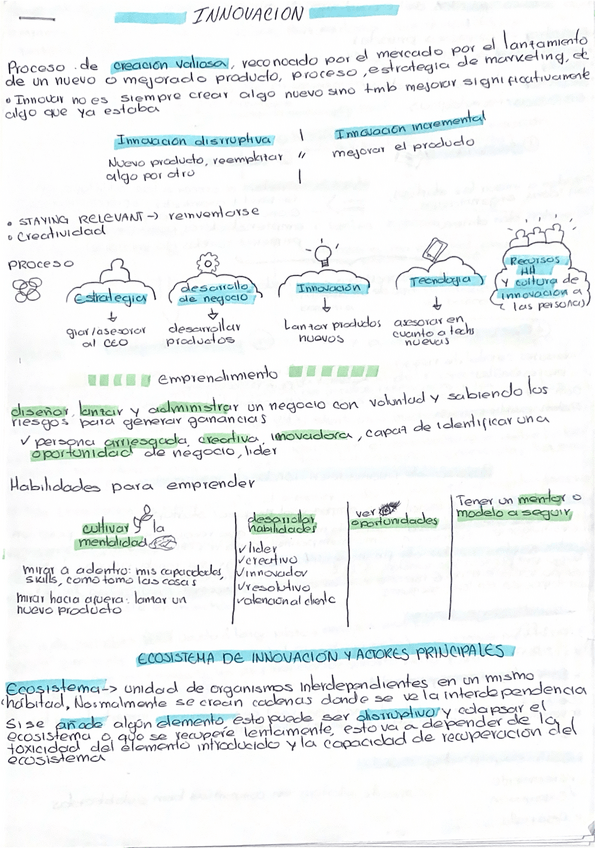 INNOVACION
Proceso de creación valiosa, reconocido por el mercado por el lantamiento
de un nuevo o mejorado producto, proceso, estrategia de marketing, et
• Innovar no es siempre crear algo nuevo sino tmb mejorar significativamente
algo que ya estaba
Innovación disrruptiva | Innovación incremental
Nuevo producto, reemplatar // mejorar el producto
algo por otro
• STAYING RELEVANT → reinventarse
• Creatividad
PROCESO
Estrategia
guiar/asesorar
al CEO
desarrollo
de negocio
desarrollar
productos
Innovación
Lantar productos
nuevos
Tecnologia
asesorar en
cuanto a techs
nuevas
Recursos
HH
y cultura de
innovación a
( las personas)
emprendimiento
diseñar, lantar y administrar un negocio con voluntad y sabiendo los
riesgos para generar ganancias
✓ persona arriesgada, creativa, innovadora, capaz de identificar una
oportunidad de negocio, lider
Habilidades para emprender
cultivar la
mentalidad
mirar a adentro: mis capacidades,
skills, como tomo las cosas
mirar hacia afuera: lantar un
nuevo producto
desarrollar
habilidades
✓ lider
✓ creativo
✓ innovador
✓ resolutivo
✓ atencion al cliente
ver
oportunidades
Tener un mentor o
modelo a seguir
ECOSISTEMA DE INNOVACION Y ACTORES PRINCIPALES
Ecosistema → unidad de organismos interdependientes en un mismo
habitad, Normalmente se crean cadenas donde se ve la interdependencia
Si se añade algún elemento esto puede ser disrruptivo y colapsar el
ecosistema o que se recupere lentamente, esto va a depender de la
toxicidad del elemento introducido y la capacidad de recuperacion del
ecosistema